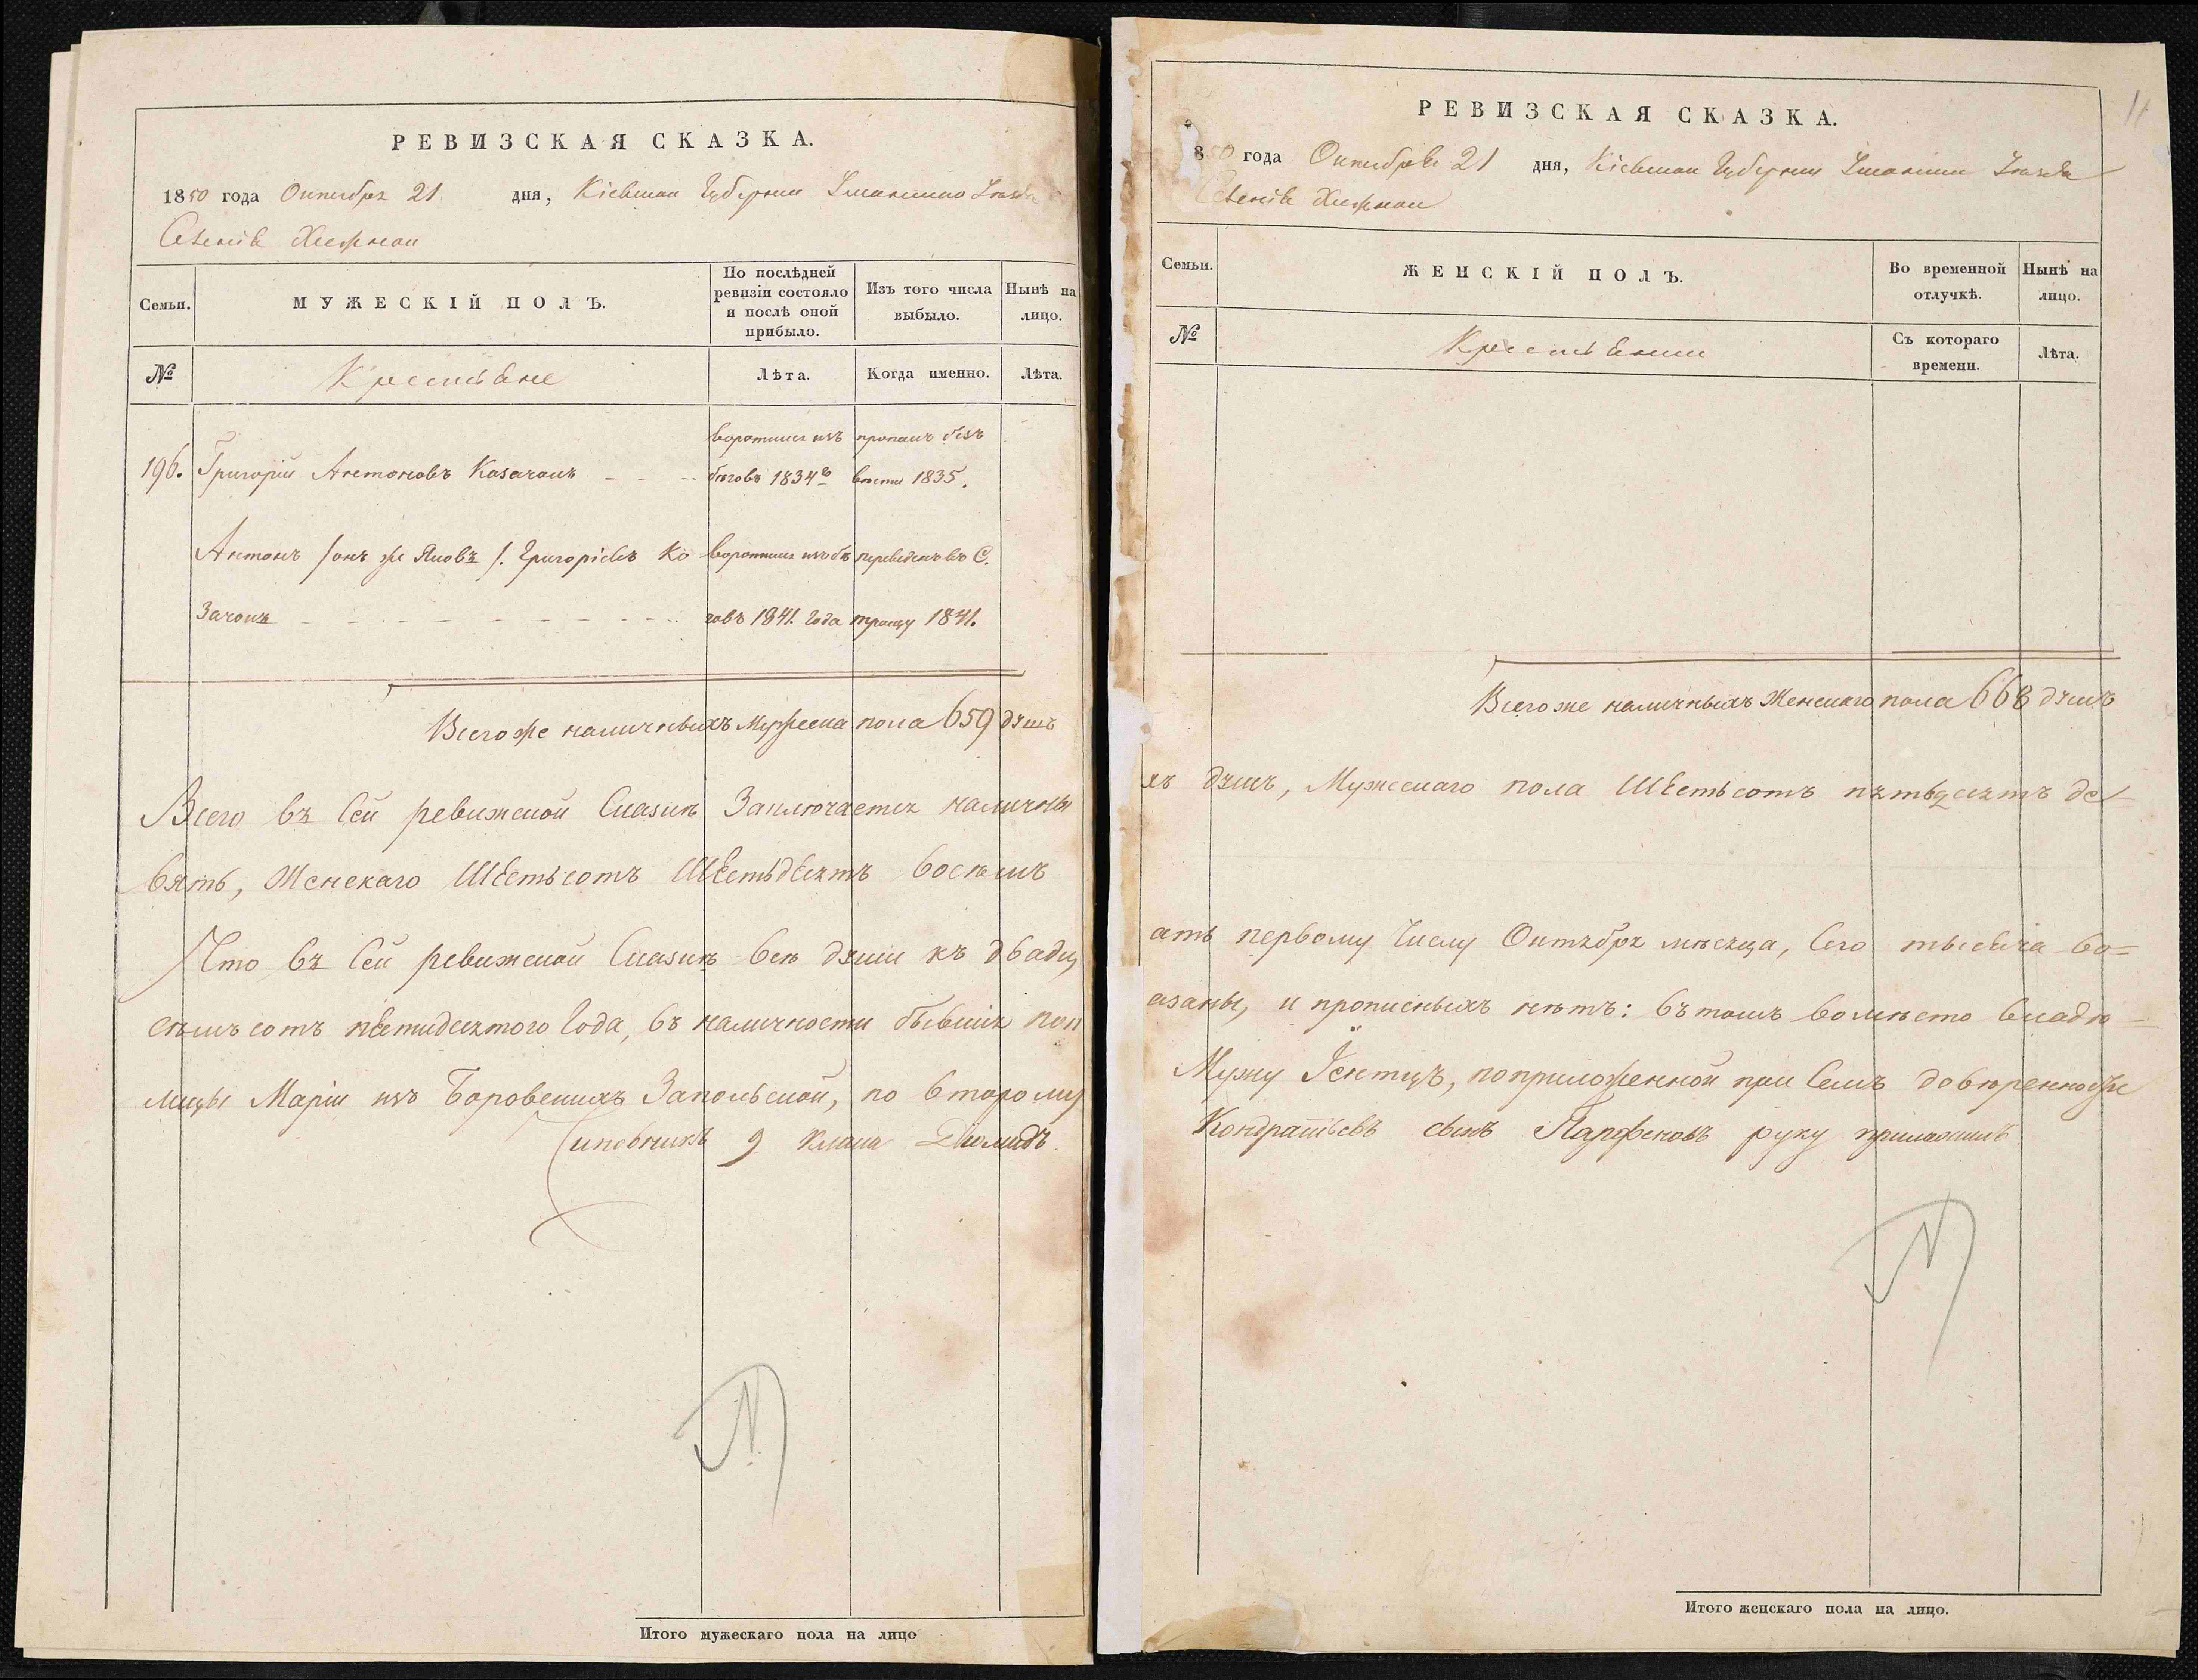 РЕВИЗСКАЯ СКАЗКА.
1850 года Октября 21 дня, Кіевской Губерніи Уманскаго Уезда
Селенія Хижной
Семьи.
МУЖЕСКІЙ ПОЛЪ.
По послѣдней ревизіи состояло и послѣ оной прибыло.
Изъ того числа выбыло.
Нынѣ на лицо.
№
Крестьяне
Лѣта.
Когда именно.
Лѣта.
воротился изъ пропалъ безъ
196. Григорій Антоновъ Казачокъ - - - бѣговъ 1834го вѣсти 1835.
Антонъ /онъ же Яковъ/. Григоріевъ Ко воротился изъ бѣ переведенъ въ С.
зачокъ - - - - - - - - - говъ 1841. года трощу 1841.
Всего же наличныхъ Мужеска пола 659 душъ
Всего въ сей ревижской Сказкѣ Заключается наличны
вять, Женскаго Шестьсотъ Шестьдесятъ восемь
Что въ сей ревижской Сказкѣ всѣ души къ двадц
семьсотъ пятидесятого года, въ наличности бывшія пок
мицы Маріи изъ Боровскихъ Запольской, по второму
Чиновникъ 9 класа Діомидъ
Итого мужескаго пола на лицо
РЕВИЗСКАЯ СКАЗКА.
850 года Октября 21 дня, Кіевской Губерніи Уманскаго Уезда
Селенія Хижной
Семьи.
ЖЕНСКІЙ ПОЛЪ.
Во временной отлучкѣ.
Нынѣ на лицо.
№
Крестьянки
Съ котораго времени.
Лѣта.
Всего же наличныхъ Женскаго пола 668 душъ
хъ душъ, Мужескаго пола Шестьсотъ пятьдесятъ де=
ать первому Числу Октября мѣсяца, сего тысяча во=
азаны, и прописныхъ нѣтъ: въ томъ вомѣсто владѣ=
Мужу Іентцъ, по приложенной при семъ довѣренности
Кондратьевъ сынъ Парфеновъ руку приложилъ
Итого женскаго пола на лицо.